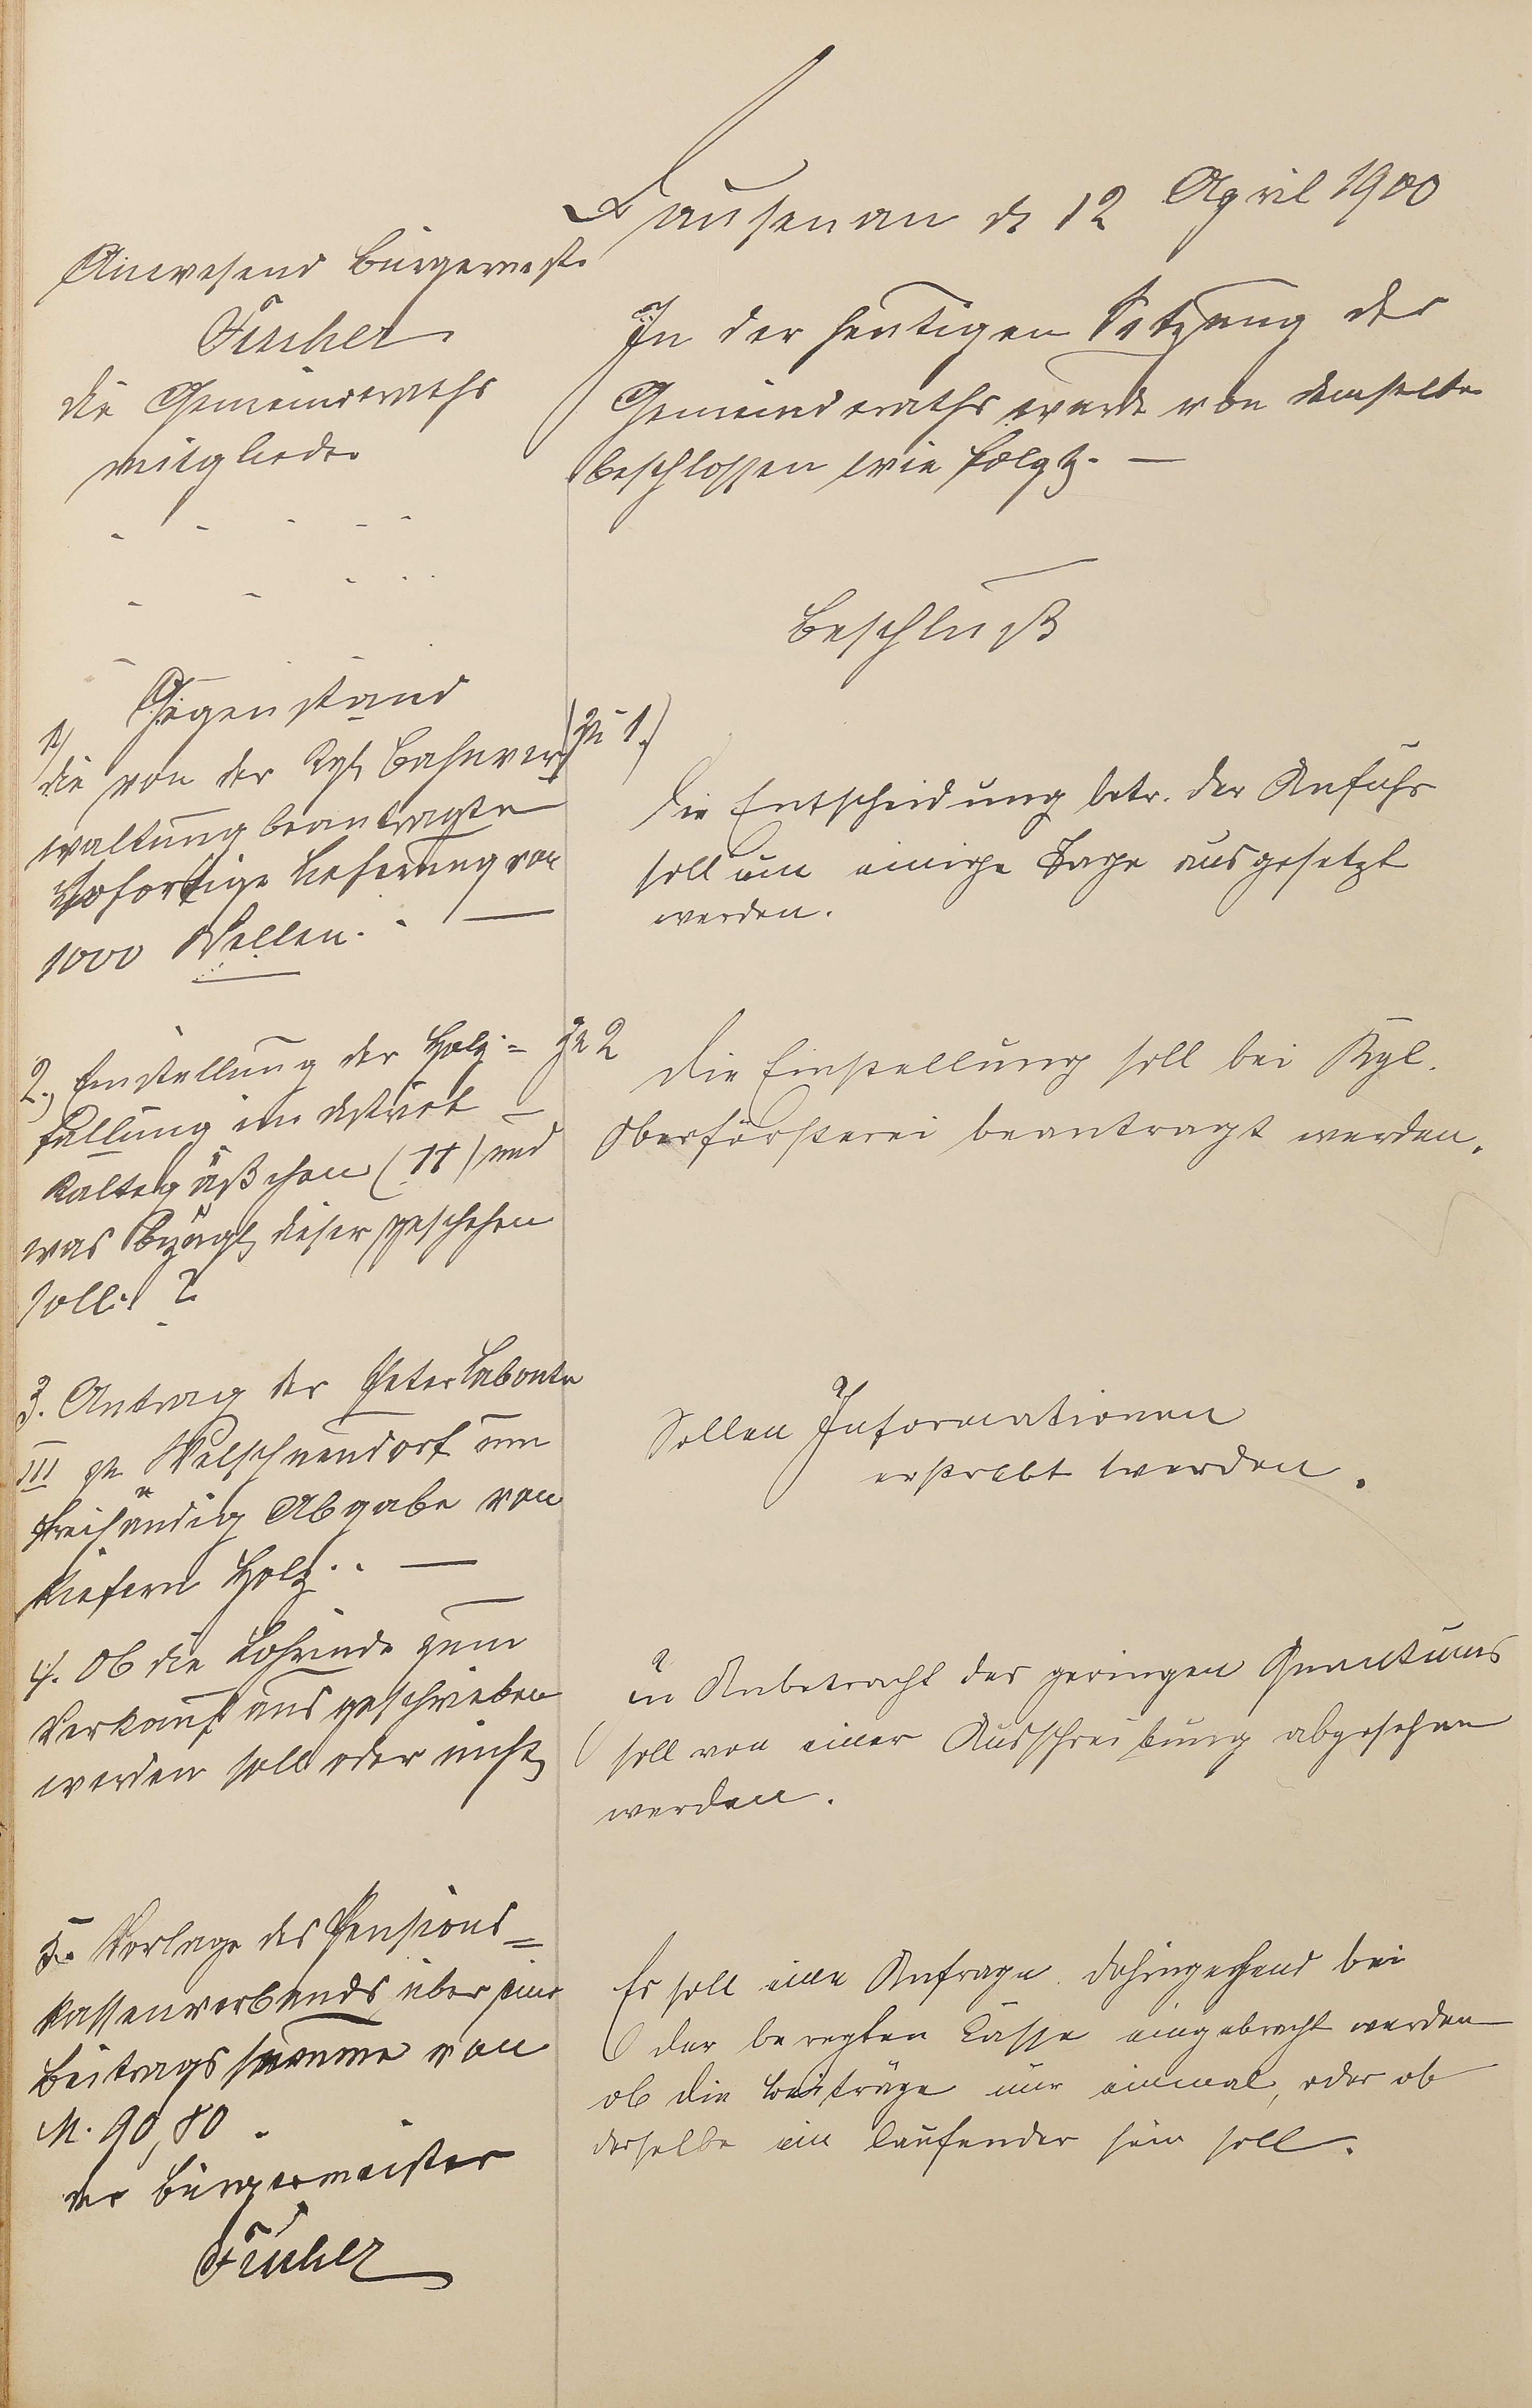 Fausenau d 12 April 1900
Anwesend Bürgermstr.
Fischer
die Gemeinderaths
mitglieder
In der heutigen Sitzung des
Gemeinderaths wurde von demselben
beschlossen wie folgt. —
Beschluß
Gegenstand
1)
die von der Kgl. Bahnver
waltung beantragte
sofortige Lieferung von
1000 Wellen. —
zu 1.)
Die Entscheidung betr. der Anfuhr
soll um einige Tage ausgesetzt
werden.
2., Einstellung der Holz=
fällung im District
Kaltegäßchen (11) und
was bezügl. dieser geschehen
soll. ?
zu 2
Die Einstellung soll bei Kgl.
Oberförsterei beantragt werden.
3. Antrag des Peter Labonte
III zu Welschneudorf um
freihändig Abgabe von
Kiefern Holz. —
Sollen Informationen
erstrebt werden.
4. Ob die Lohrinde zum
Verkauf ausgeschrieben
werden soll oder nicht
in Anbetracht des geringen Quantums
soll von einer Ausschreibung abgesehen
werden.
5. Vorlage des Pensions=
kassenverbands über eine
Beitragssumme von
M. 90,80.
der Bürgermeister
Fischer
Es soll eine Anfrage dahingehend bei
der beregten Casse eingebracht werden
ob die Beiträge nur einmal, oder ob
derselbe ein laufender sein soll.